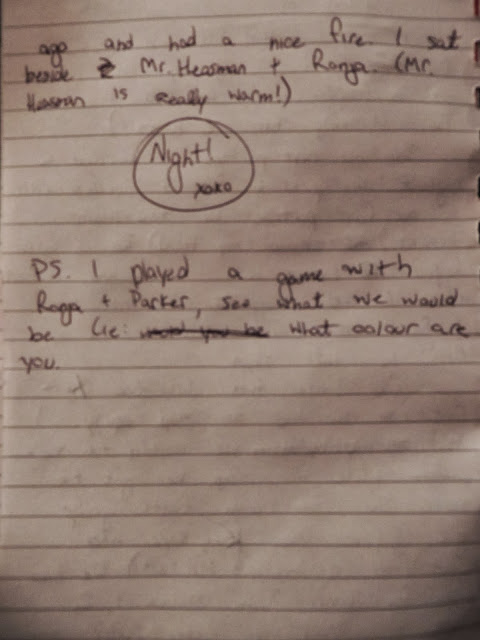 ago and had a nice fire. I sat
beside Mr. Heasman + Ranga. (Mr.
Heasman is really warm!)
Night!
xoxo
PS. I played a game with
Ranga + Parker, see what we would
be (ie: would you be what colour are
you.